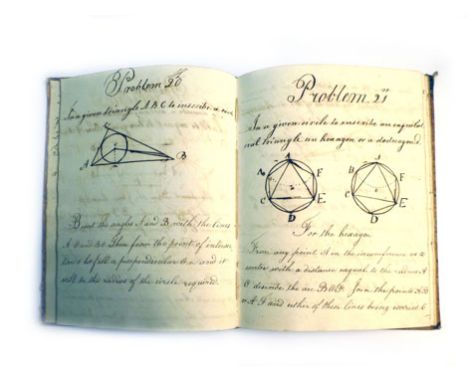 Problem 20
In a given triangle A B C to inscribe a
A
B
Bisect the angles A and B, with the lines
A and B Then from the point of
let fall a perpendicular and it
will be the radius of the circle required.
Problem 21
In a given circle to inscribe an equilat
eral triangle an hexagon or a dodecagon.
A
B F
C E
D
B F
C E
D
For the hexagon
From any point A in the circumference as a
center with a distance equal to the radius A
O describe the arc B O F. Join the points A B
or A F and either of these lines being carried 6